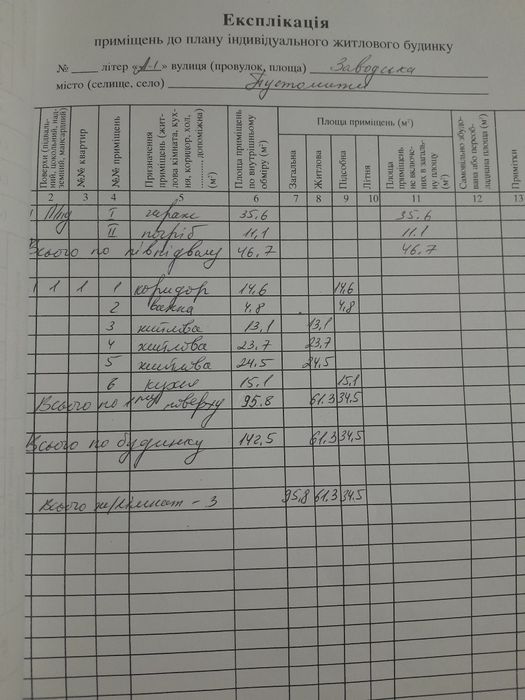 Експлікація
приміщень до плану індивідуального житлового будинку
№ ____ літер «А-І» вулиця (провулок, площа) Заводська
місто (селище, село) Пустомити
Поверхи (підвальний, цокольний, надземний, мансардний)
№№ квартир
№№ приміщень
Призначення приміщень (житлова кімната, кухня, коридор, хол, .......... допоміжна)
Площа приміщень по внутрішньому обміру (м²)
Площа приміщень (м²)
Загальна
Житлова
Підсобна
Літня
Площа приміщень не включених в загальну площу (м²)
Самовільно збудована або переобладнана площа (м²)
Примітки
2 3 4 5 6 7 8 9 10 11 12 13
І гараж 35.6 35.6
ІІ погріб 11,1 11.1
Всього по півпідвалу 46,7 46.7
1 1 1 коридор 14,6 14,6
2 ванна 4,8 4,8
3 житлова 13,1 13,1
4 житлова 23,7 23,7
5 житлова 24,5 24,5
6 кухня 15,1 15,1
Всього по 1му поверху 95.8 61.3 34.5
Всього по будинку 142,5 61.3 34.5
Всього ж/кімнат - 3 95,8 61.3 34.5